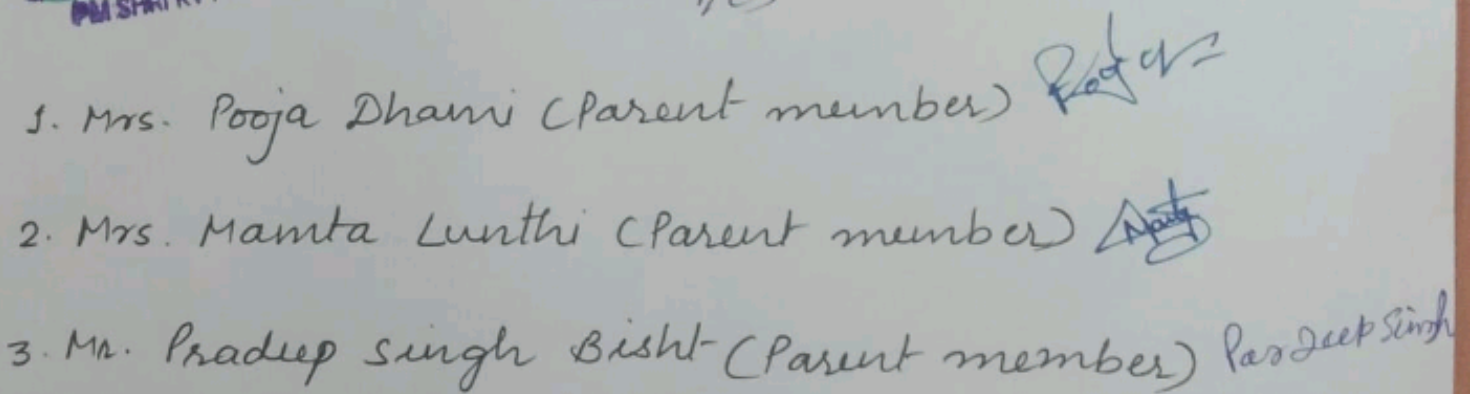 PM SHRI
1. Mrs. Pooja Dhami (Parent member)
2. Mrs. Mamta Lunthi (Parent member)
3. Mr. Pradeep singh Bisht (Parent member) Pardeep Singh